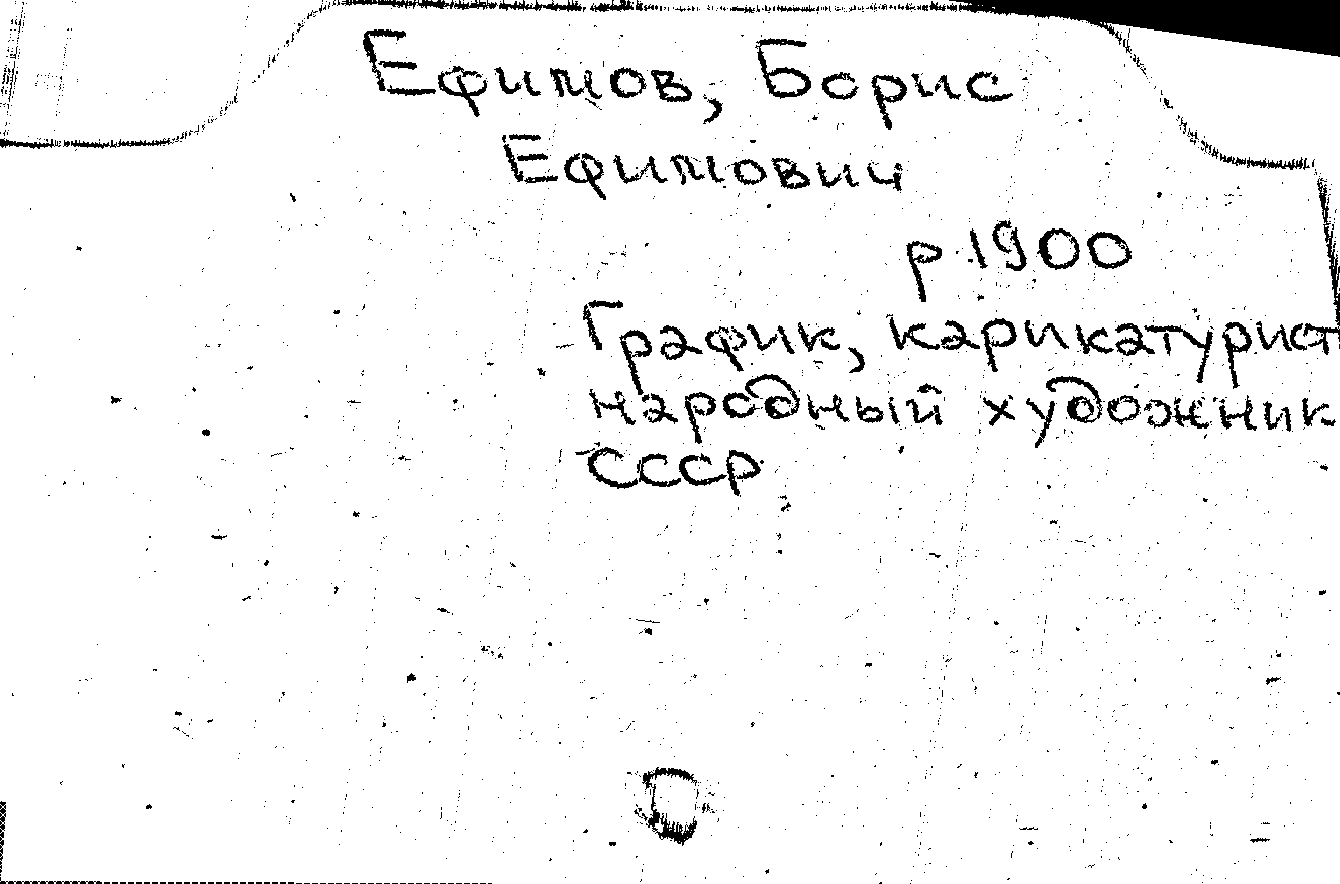 Ефимов, Борис
Ефимович
р 1900
График, карикатурист
народный художник
СССР